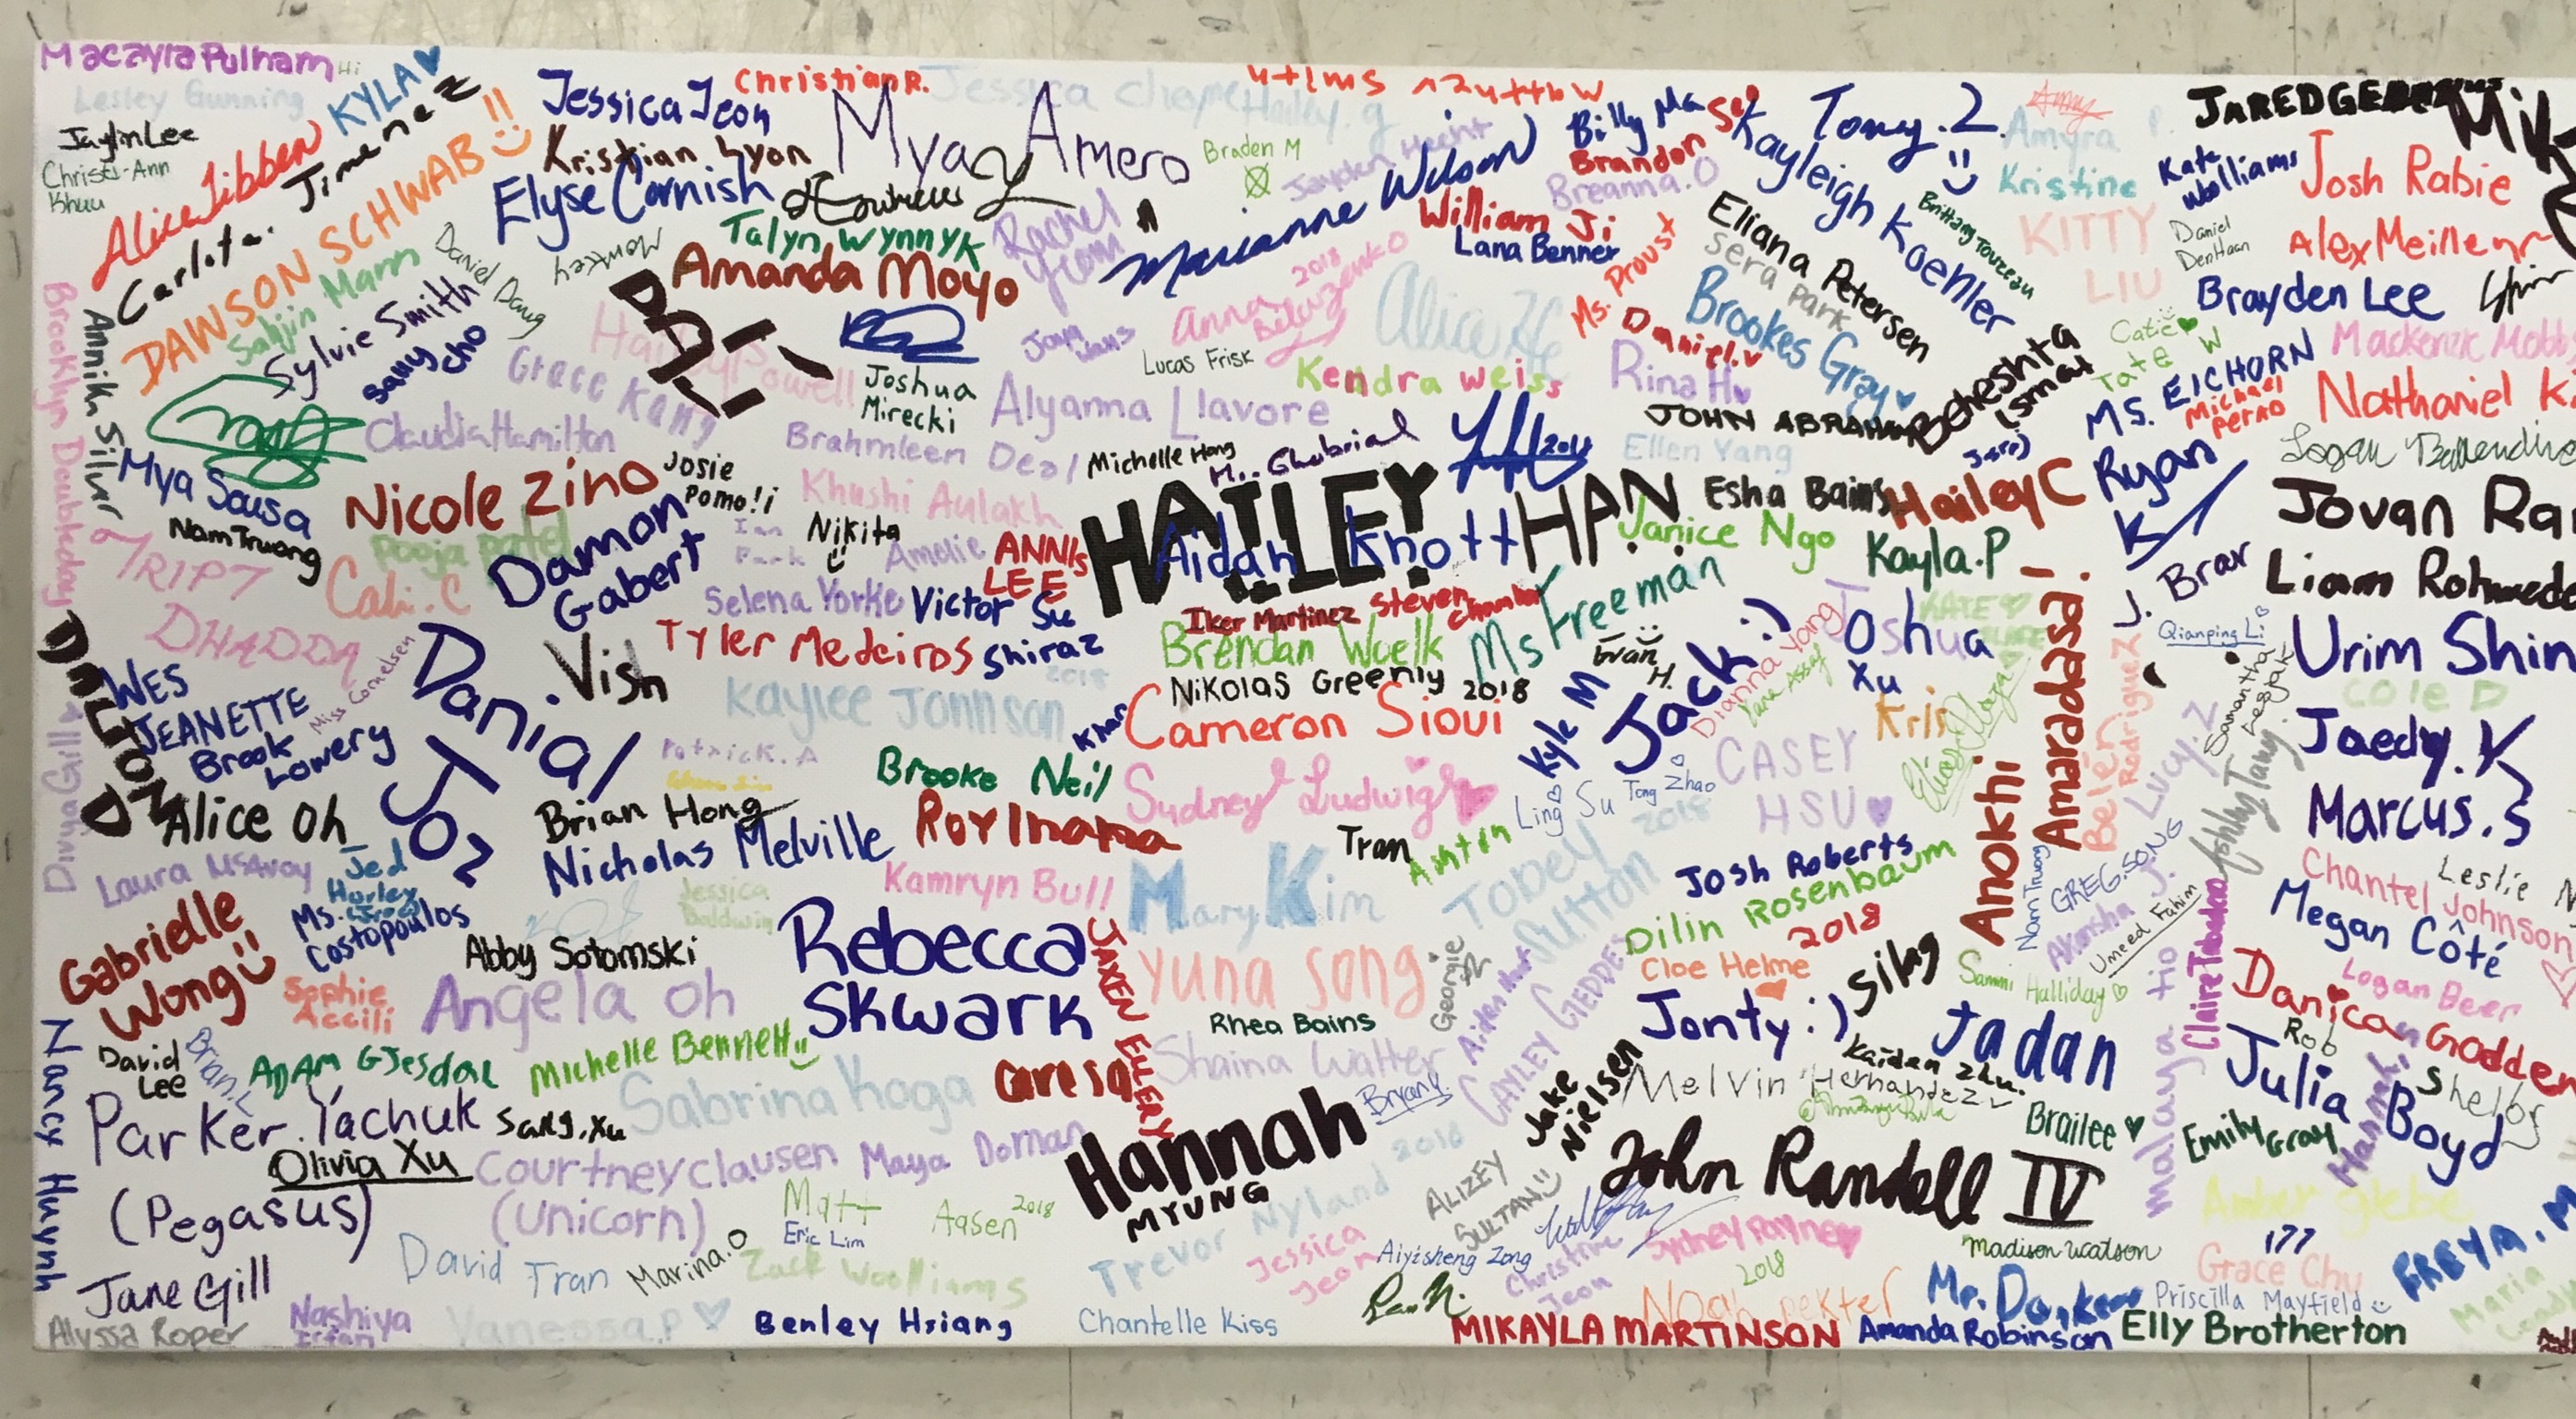 Macayla Pulham
Hi
Lesley Gunning
KYLA
Jaylin Lee
Christi-Ann
Khuu
Alice Tibben
Carlota. Jimenez
DAWSON SCHWAB!!
Sahjin Mann
Daniel Dang
Sylvie Smith
Sally Cho
Jessica Jeon
Christian R.
Kristian Lyon
Elyse Cornish
Monkey
Mya Amero
Talyn Wynnyk
Amanda Moyo
Rachel
Yeom
Braden M
Jayden Hecht
Hailey. g
Marianne Wilson
Billy Ma
Brandon
Breanna.O
William Ji
Lana Benner
Ms. Proust
Daniel.v
Tony.Z
Kayleigh Koehler
Eliana Petersen
Sera Park
Brookes Gray
Brittany Touzeau
Amy
Amyra P.
Kristine
KITTY
LIU
Kate
Wolliams
Daniel
DenHaan
Josh Rabie
Alex Meilleur
Brayden Lee
Catie
Tate W
MS. EICHORN
Michael
Perko
Nathaniel
Brooklyn Doubleday
Annik Silver
Grace Kang
Claudia Hamilton
Joshua
Mirecki
Lucas Frisk
Anna
2018
Alice He
Kendra Weiss
Rina H
JOHN ABRAHAM
Beheshta
Ismat
Ellen Yang
Alyanna Llavore
Brahmleen Deol
Michelle Hong
M. Ghobrial
Mya Sousa
Nam Truong
Nicole Zino
Josie
Pomo!i
Pooja Patel
Damon
Gabert
Khushi Aulakh
Ian
Park
Nikita
Amelie
ANNIs
LEE
HAILEY HAN
Aidan Knott
Esha Bains
Hailey C
Janice Ngo
Kayla.P
Ryan
K
J. Brar
Jovan
Liam
TRIPT
DHADDA
Cali.C
Selena Yorke
Victor Su
Tyler Medeiros
Shiraz
Iker Martinez
Steven
Brendan Woelk
Ms Freeman
Nikolas Greenly 2018
Evan
H.
Jack:)
Dianna Yang
Joshua
Xu
KATE
Qianping Li
Urim Shin
Cole D
DALTON
D
WES
JEANETTE
Miss Cornelsen
Brook
Lowery
Danial
Joz
Vish
Kaylee Johnson
2018
Khar
Cameron Sioui
Kyle M
Kris
Amaradasa!
Anokhi
Belen
Rodriguez
Lucy.Z
Samantha
Legjak
Ashley Tang
Jaedyn.V
Marcus.S
Divya Gill
Alice Oh
Patrick.A
Brian Hong
Brooke Neil
Sydney Ludwig
Ling Su
Tong Zhao
CASEY
HSU
Laura McAvoy
Jed
Nicholas Melville
Roy Inama
Tran
Ashton
Tobey
Sutton
2018
Josh Roberts
Dilin Rosenbaum
Nam Truong
GREG.SONG
Chantel Johnson
Leslie
Megan Côté
Gabrielle
Wong
Ms.
Costopoulos
Jessica
Baldwin
Kamryn Bull
Mary Kim
Abby Sotomski
Rebecca
Skwark
JAXEN ELLERY
Yuna Song
Georgie
2018
Cloe Helme
Silas
Akansha J.
Umeed Fahim
Danica Godden
Logan Beer
Sophie
Accili
Angela Oh
Rhea Bains
CAYLEY GEDDES
Jonty:)
Sammi Halliday
Nancy Huynh
David
Lee
Brian.L
ADAM GJesdal
Michelle Bennett
Sabrina Koga
Caresa
Shaina Walter
Jake
Nielsen
Kaiden Zhu
Jadan
Rob
Julia
Boyd
Shelby
Hannah
Parker.Yachuk
(Pegasus)
Sang.Xu
Olivia Xu
Courtney clausen
(Unicorn)
Maya Doman
Hannah
MYUNG
Bryany
Melvin Hernandez
Brailee
Emily Gray
Malaya
Matt
Eric Lim
Aasen 2018
Trevor Nyland 2018
ALIZEY
SULTAN
John Randell IV
Amber Glebe
Jane Gill
David Tran
Marina.O
Zack Woolliams
Jessica
Jeon
Aiyisheng Zong
Christine
Jeon
Sydney Payne
2018
Madison Watson
177
Grace Chu
FREYA.M
Alyssa Roper
Nashiya
Irfan
Vanessa.P
Benley Hsiang
Chantelle Kiss
Noah Pekter
MIKAYLA MARTINSON
Amanda Robinson
Priscilla Mayfield
Elly Brotherton